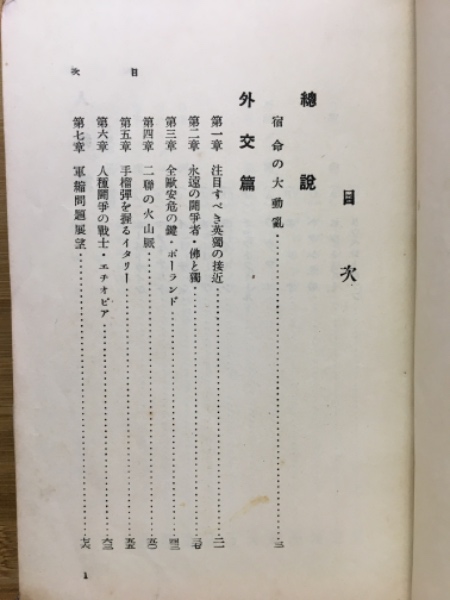 目次
總說
宿命の大動亂……三
外交篇
第一章 注目すべき英獨の接近……二一
第二章 永遠の鬪爭者・佛と獨……三七
第三章 全歐安危の鍵・ポーランド……四三
第四章 二聯の火山脈……五〇
第五章 手榴彈を握るイタリー……五五
第六章 人種鬪爭の戰士・エチオピア……六三
第七章 軍縮問題展望……七六
目次
1